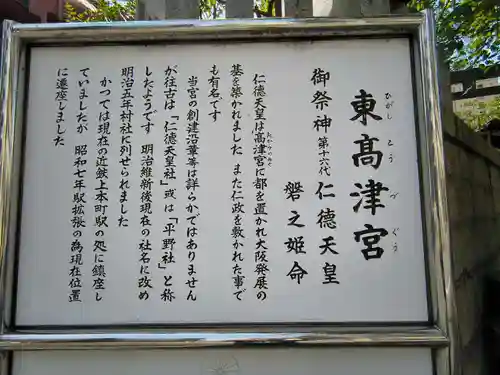 東高津宮
ひがし こうづぐう
御祭神 第十六代 仁德天皇
磐之姫命
仁德天皇は高津宮に都を置かれ大阪発展の
たかつのみや
基を築かれました また仁政を敷かれた事で
も有名です
当宮の創建沿革等は詳らかではありません
が往古は「仁德天皇社」或は「平野社」と称
したようです 明治維新後現在の社名に改め
明治五年村社に列せられました
かつては現在の近鉄上本町駅の処に鎮座し
ていましたが 昭和七年駅拡張の為現在位置
に遷座しました